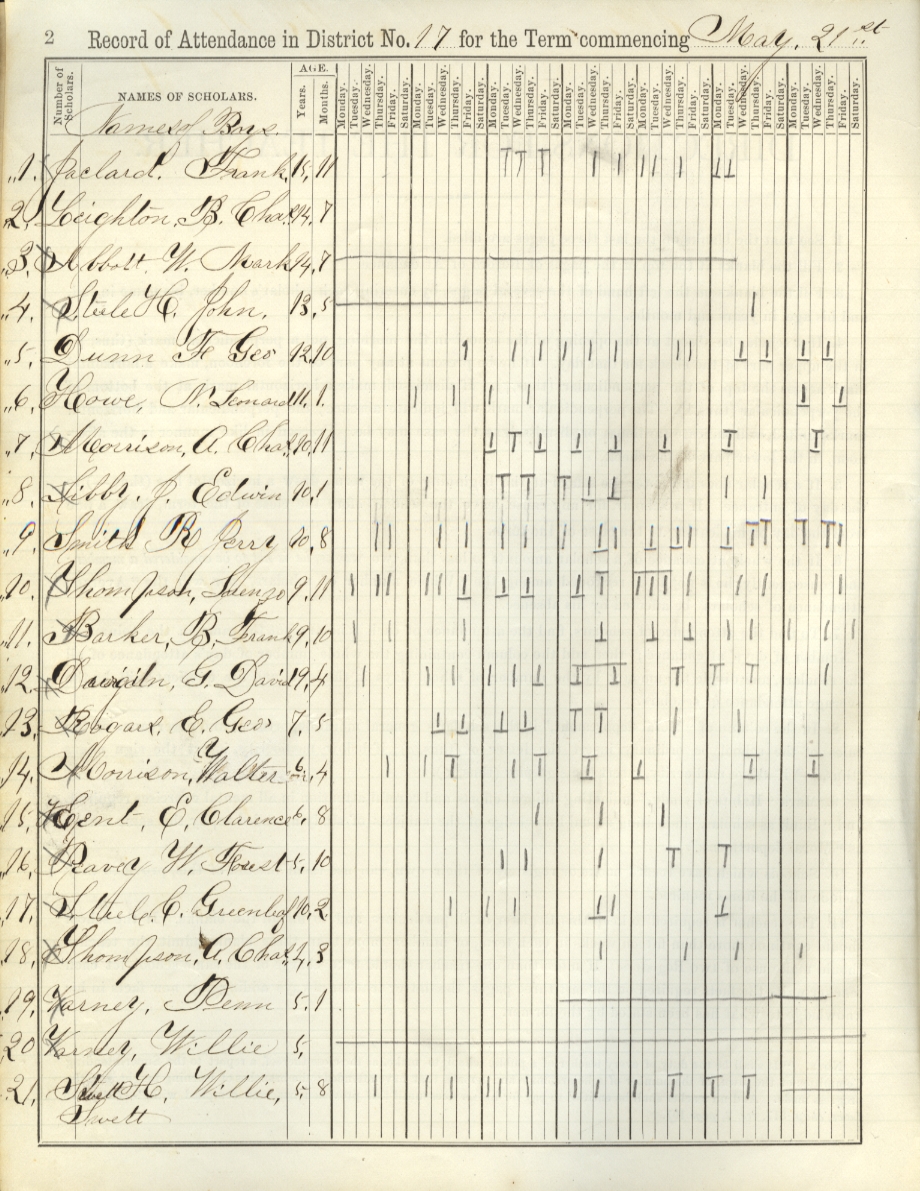 2 Record of Attendance in District No. 17 for the Term commencing May, 21st
Number of Scholars. NAMES OF SCHOLARS. AGE. Years. Months. Monday. Tuesday. Wednesday. Thursday. Friday. Saturday. Monday. Tuesday. Wednesday. Thursday. Friday. Saturday. Monday. Tuesday. Wednesday. Thursday. Friday. Saturday. Monday. Tuesday. Wednesday. Thursday. Friday. Saturday. Monday. Tuesday. Wednesday. Thursday. Friday. Saturday. Monday. Tuesday. Wednesday. Thursday. Friday. Saturday. Monday. Tuesday. Wednesday. Thursday. Friday. Saturday.
Names of Boys.
1. Frank, 15, 11
2. Leighton, B. Chas. 14, 7
3. Abbott W. Mark 14, 7
4. Steele H. John, 13, 5
5. Dunn F. Geo 12, 10
6. Howe, N. Leonard 11, 1.
7. Morrison, A. Chas. 10, 11
8. Libby, J. Edwin 10, 1
9. Smith R Jerry 10, 8
10. Thompson, Lorenzo 9, 11
11. Barker, B. Frank 9, 10
12. G. David 9, 4
13. E. Geo 7, 5
14. Morrison, Walter 6, 4
15. Kent, E. Clarence 6, 8
16. Peavey W. Forest 5, 10
17. Steele C. Greenleaf 10, 2
18. Thompson, A. Chas. 4, 3
19. Varney, Penn 5, 1
20 Varney, Willie 5,
21, H. Willie, 5, 8
Swett